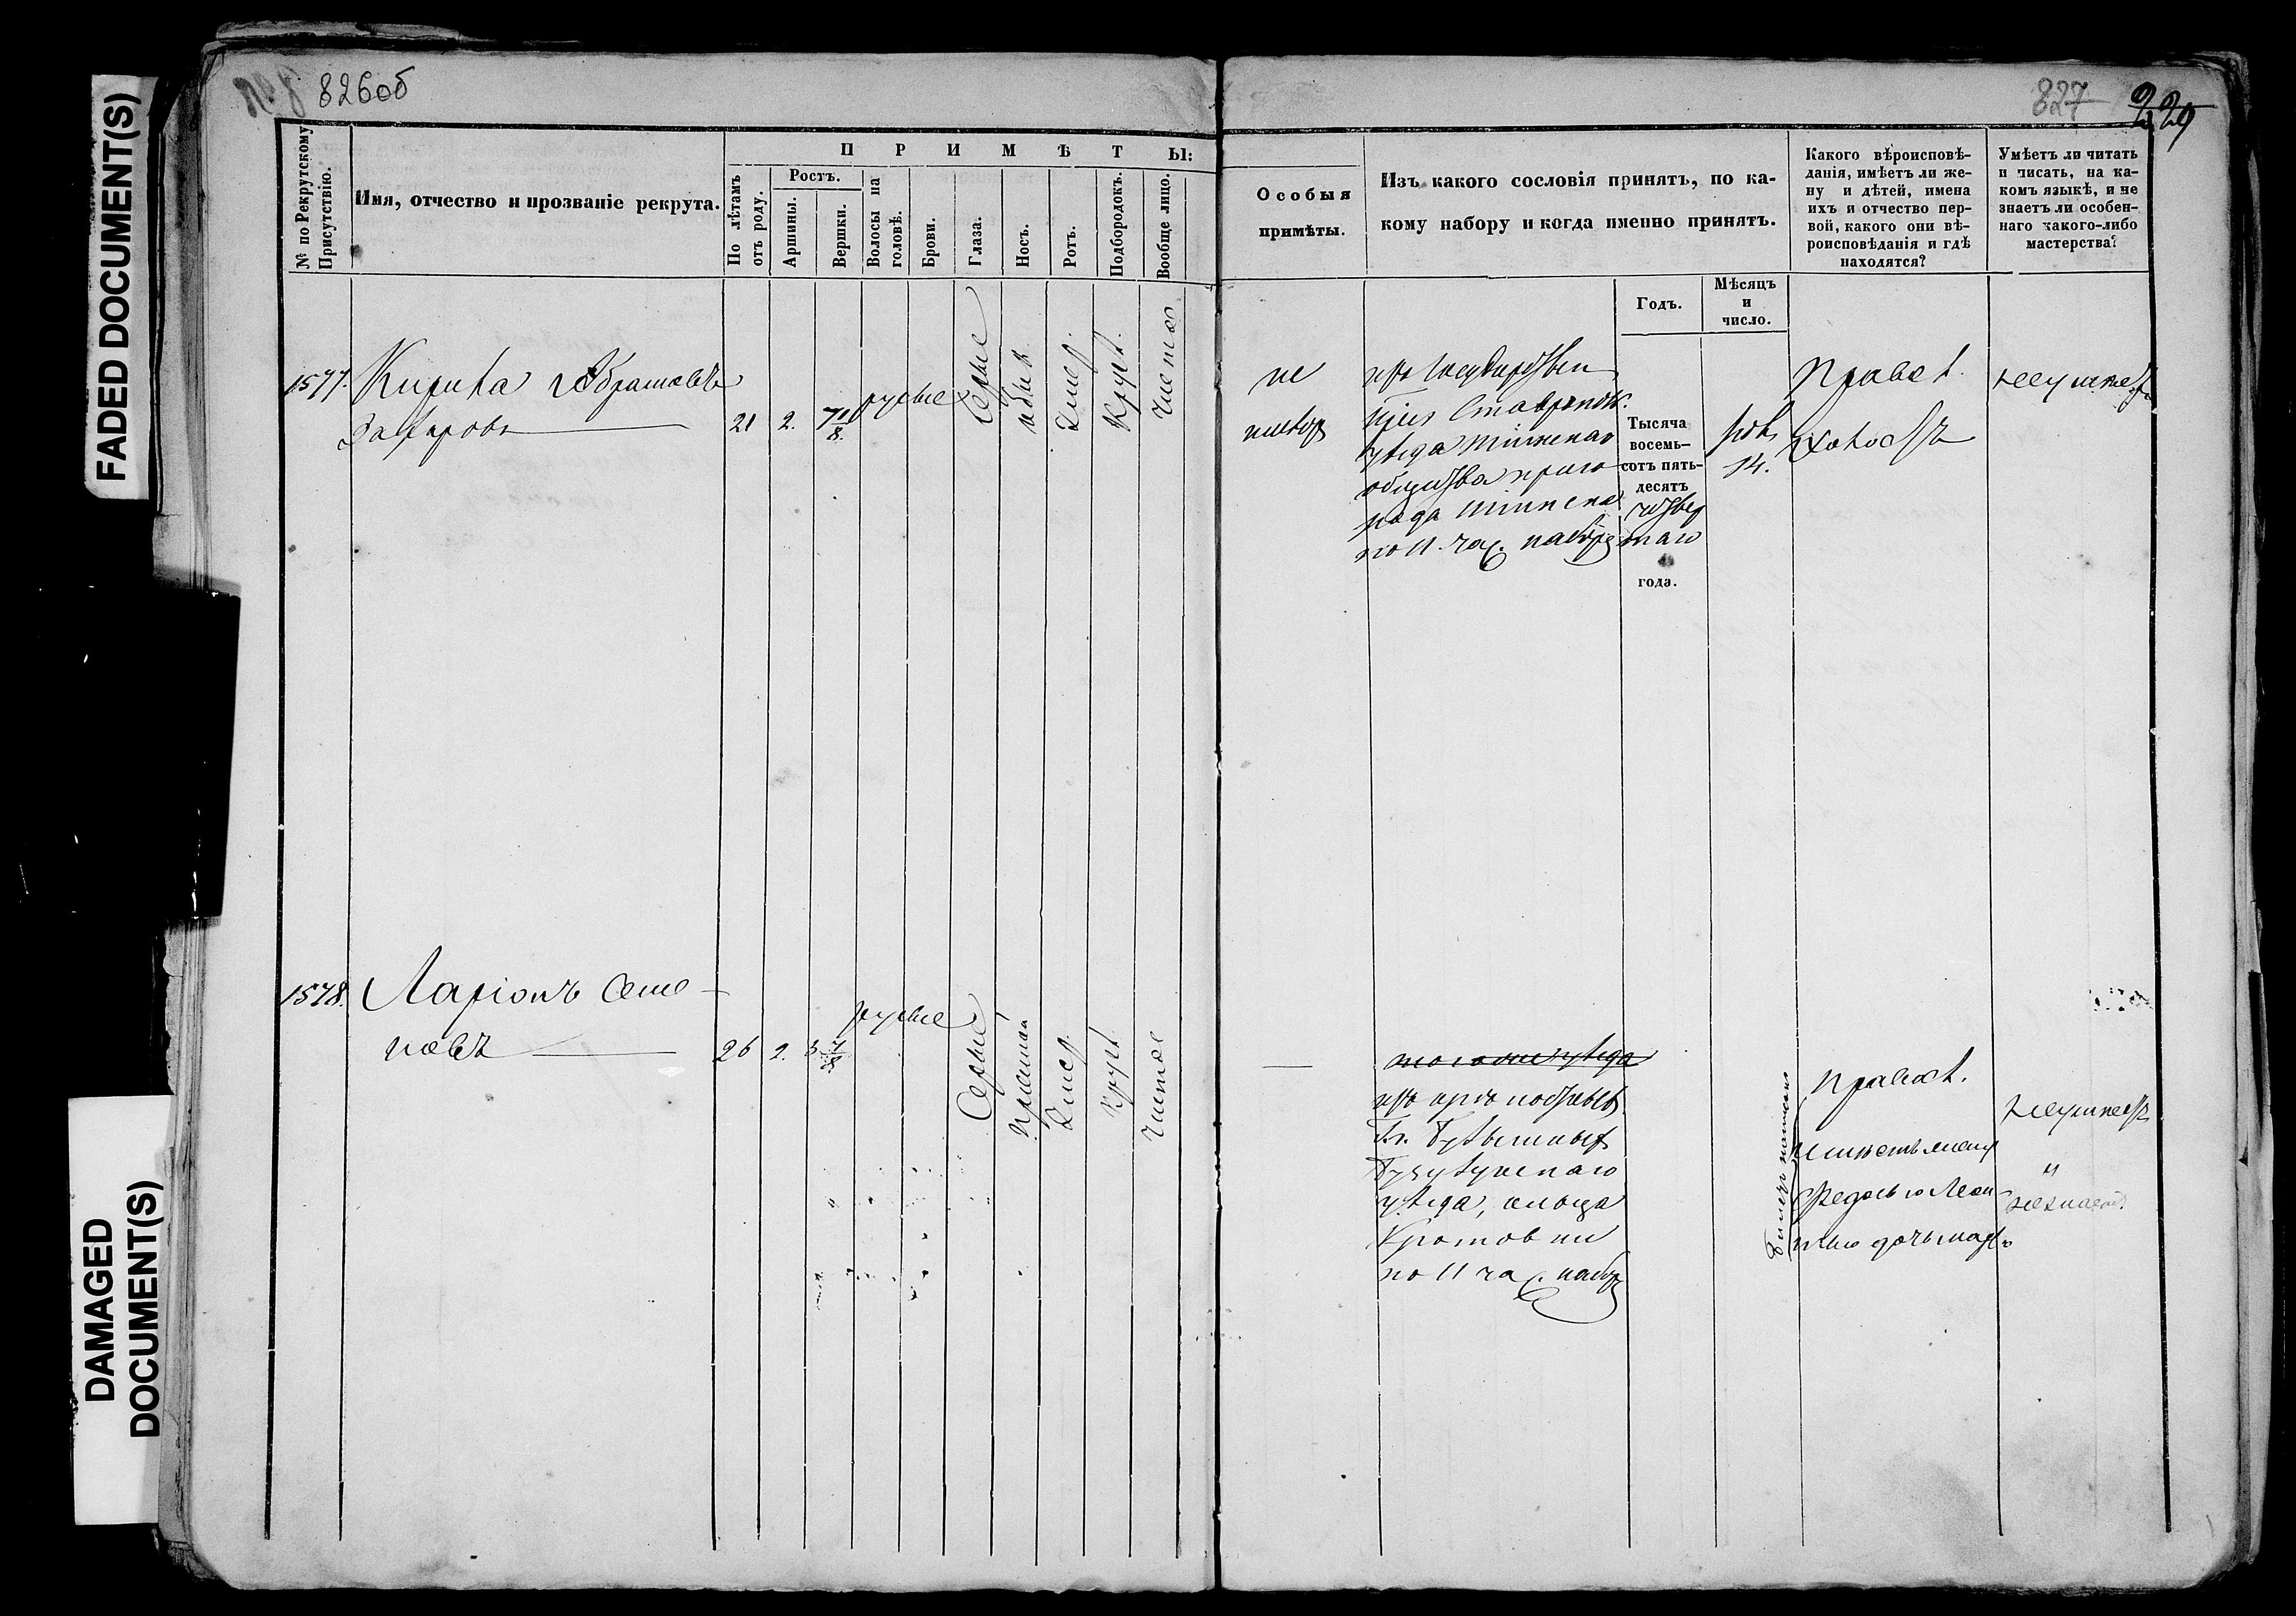 FADED DOCUMENT(S)
DAMAGED
DOCUMENT(S)
826об
827 229
№ по Рекрутскому
Присутствію.
Имя, отчество и прозваніе рекрута.
П Р И М Ѣ Т Ы:
По лѣтамъ
отъ роду.
Ростъ.
Аршины.
Вершки.
Волосы на
головѣ.
Брови.
Глаза.
Носъ.
Ротъ.
Подбородокъ.
Вообще лицо.
Особыя
примѣты.
Изъ какого сословія принятъ, по ка-
кому набору и когда именно принятъ.
Годъ.
Мѣсяцъ
и
число.
Какого вѣроисповѣ-
данія, имѣетъ ли же-
ну и дѣтей, имена
ихъ и отчество пер-
вой, какого они вѣ-
роисповѣданія и гдѣ
находятся?
Умѣетъ ли читать
и писать, на ка-
комъ языкѣ, и не
знаетъ ли особен-
наго какого-либо
мастерства?
1577.
21 2. 7 1/8.
русые
Серые
умер.
Кругл.
чистое
не
имѣетъ
изъ государствен
Ставропол.
уѣзда
общества приго
рода
по 11 час. набору
Тысяча
восемь-
сотъ пять-
десятъ
четвер
таго
года.
14.
Правос.
Холостъ
неумѣетъ
1578.
Ларіонъ Семе-
новъ
26 2. 3 7/8
русые
Серые
прямой
умер.
кругл.
чистое
того же уѣзда
Бузулукскаго
уѣзда, сельца
Кротовки
по 11 час. набор
правосл.
имѣетъ жену
Федосью Леон
тьеву дочь
неумѣетъ
"
незнаетъ